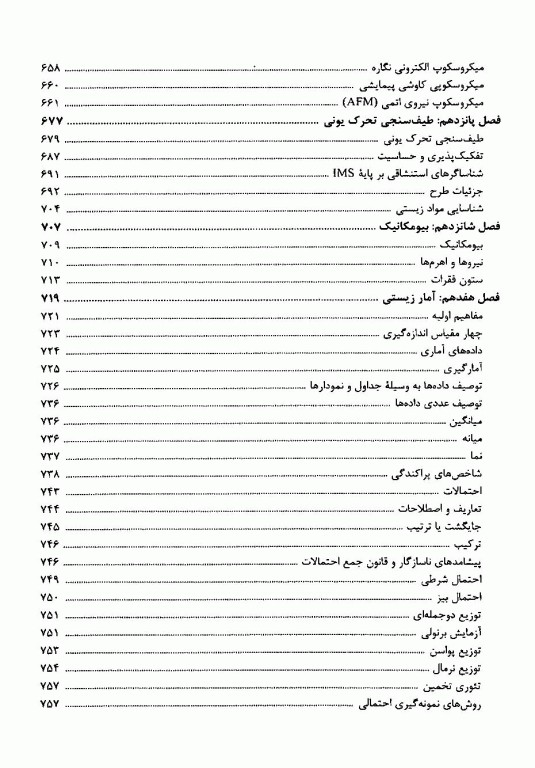 میکروسکوپ الکترونی نگاره ........ ۶۵۸
میکروسکوپی کاوشی پیمایشی ........ ۶۶۰
میکروسکوپ نیروی اتمی (AFM) ........ ۶۶۱
فصل پانزدهم: طیف‌سنجی تحرک یونی ........ ۶۷۷
طیف‌سنجی تحرک یونی ........ ۶۷۹
تفکیک‌پذیری و حساسیت ........ ۶۸۷
شناساگرهای استنشاقی بر پایهٔ IMS ........ ۶۹۱
جزئیات طرح ........ ۶۹۲
شناسایی مواد زیستی ........ ۷۰۴
فصل شانزدهم: بیومکانیک ........ ۷۰۷
بیومکانیک ........ ۷۰۹
نیروها و اهرم‌ها ........ ۷۱۰
ستون فقرات ........ ۷۱۳
فصل هفدهم: آمار زیستی ........ ۷۱۹
مفاهیم اولیه ........ ۷۲۱
چهار مقیاس اندازه‌گیری ........ ۷۲۳
داده‌های آماری ........ ۷۲۴
آمارگیری ........ ۷۲۵
توصیف داده‌ها به وسیلهٔ جداول و نمودارها ........ ۷۲۶
توصیف عددی داده‌ها ........ ۷۳۶
میانگین ........ ۷۳۶
میانه ........ ۷۳۶
نما ........ ۷۳۷
شاخص‌های پراکندگی ........ ۷۳۸
احتمالات ........ ۷۴۳
تعاریف و اصطلاحات ........ ۷۴۴
جایگشت یا ترتیب ........ ۷۴۵
ترکیب ........ ۷۴۶
پیشامدهای ناسازگار و قانون جمع احتمالات ........ ۷۴۶
احتمال شرطی ........ ۷۴۹
احتمال بیز ........ ۷۵۰
توزیع دوجمله‌ای ........ ۷۵۱
آزمایش برنولی ........ ۷۵۱
توزیع پواسن ........ ۷۵۳
توزیع نرمال ........ ۷۵۴
تئوری تخمین ........ ۷۵۷
روش‌های نمونه‌گیری احتمالی ........ ۷۵۷